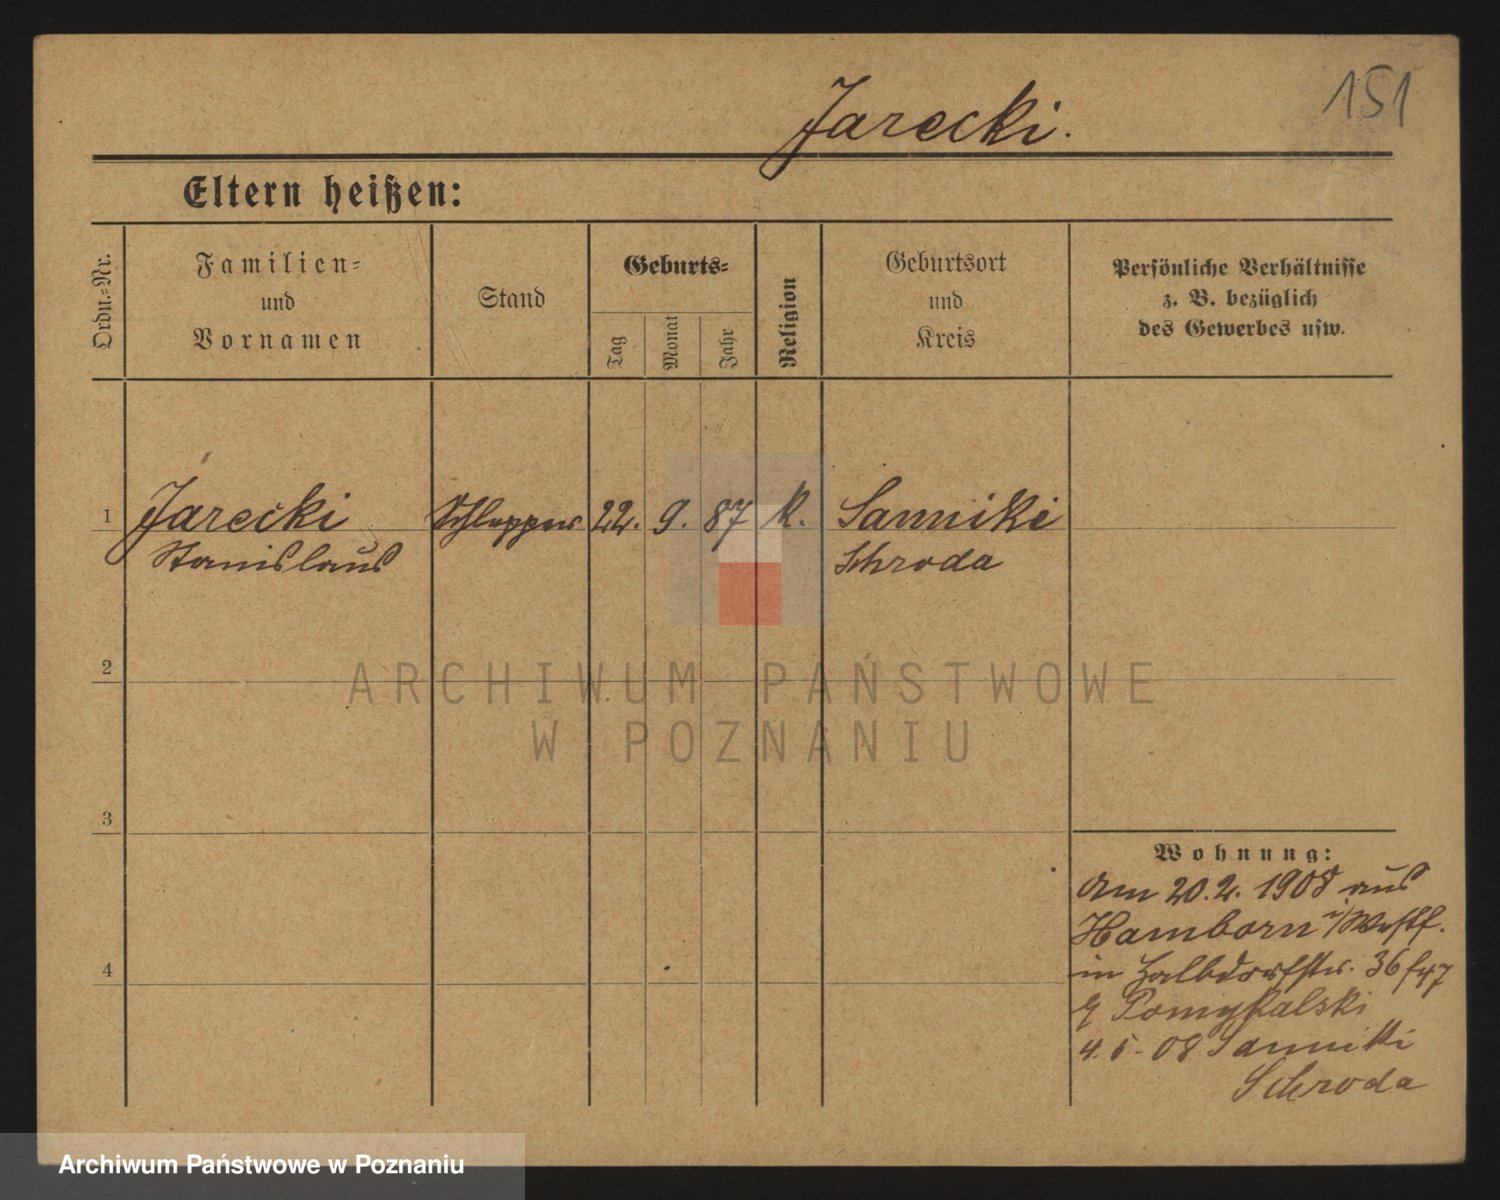 151
Jarecki.
Eltern heißen:
Ordn.-Nr.
Familien-
und
Vornamen
Stand
Geburts-
Tag
Monat
Jahr
Religion
Geburtsort
und
Kreis
Persönliche Verhältnisse
z. B. bezüglich
des Gewerbes usw.
1 Jarecki Schlepper 22. 9. 87 K. Sanniki
Stanislaus Schroda
2
ARCHIWUM PAŃSTWOWE
W POZNANIU
3
Wohnung:
Am 20.2. 1908 aus
Hamborn i/Westf.
in Halbdorfstr. 36
4
Pomykalski
4. 5. 08 Sanniki
Schroda
Archiwum Państwowe w Poznaniu